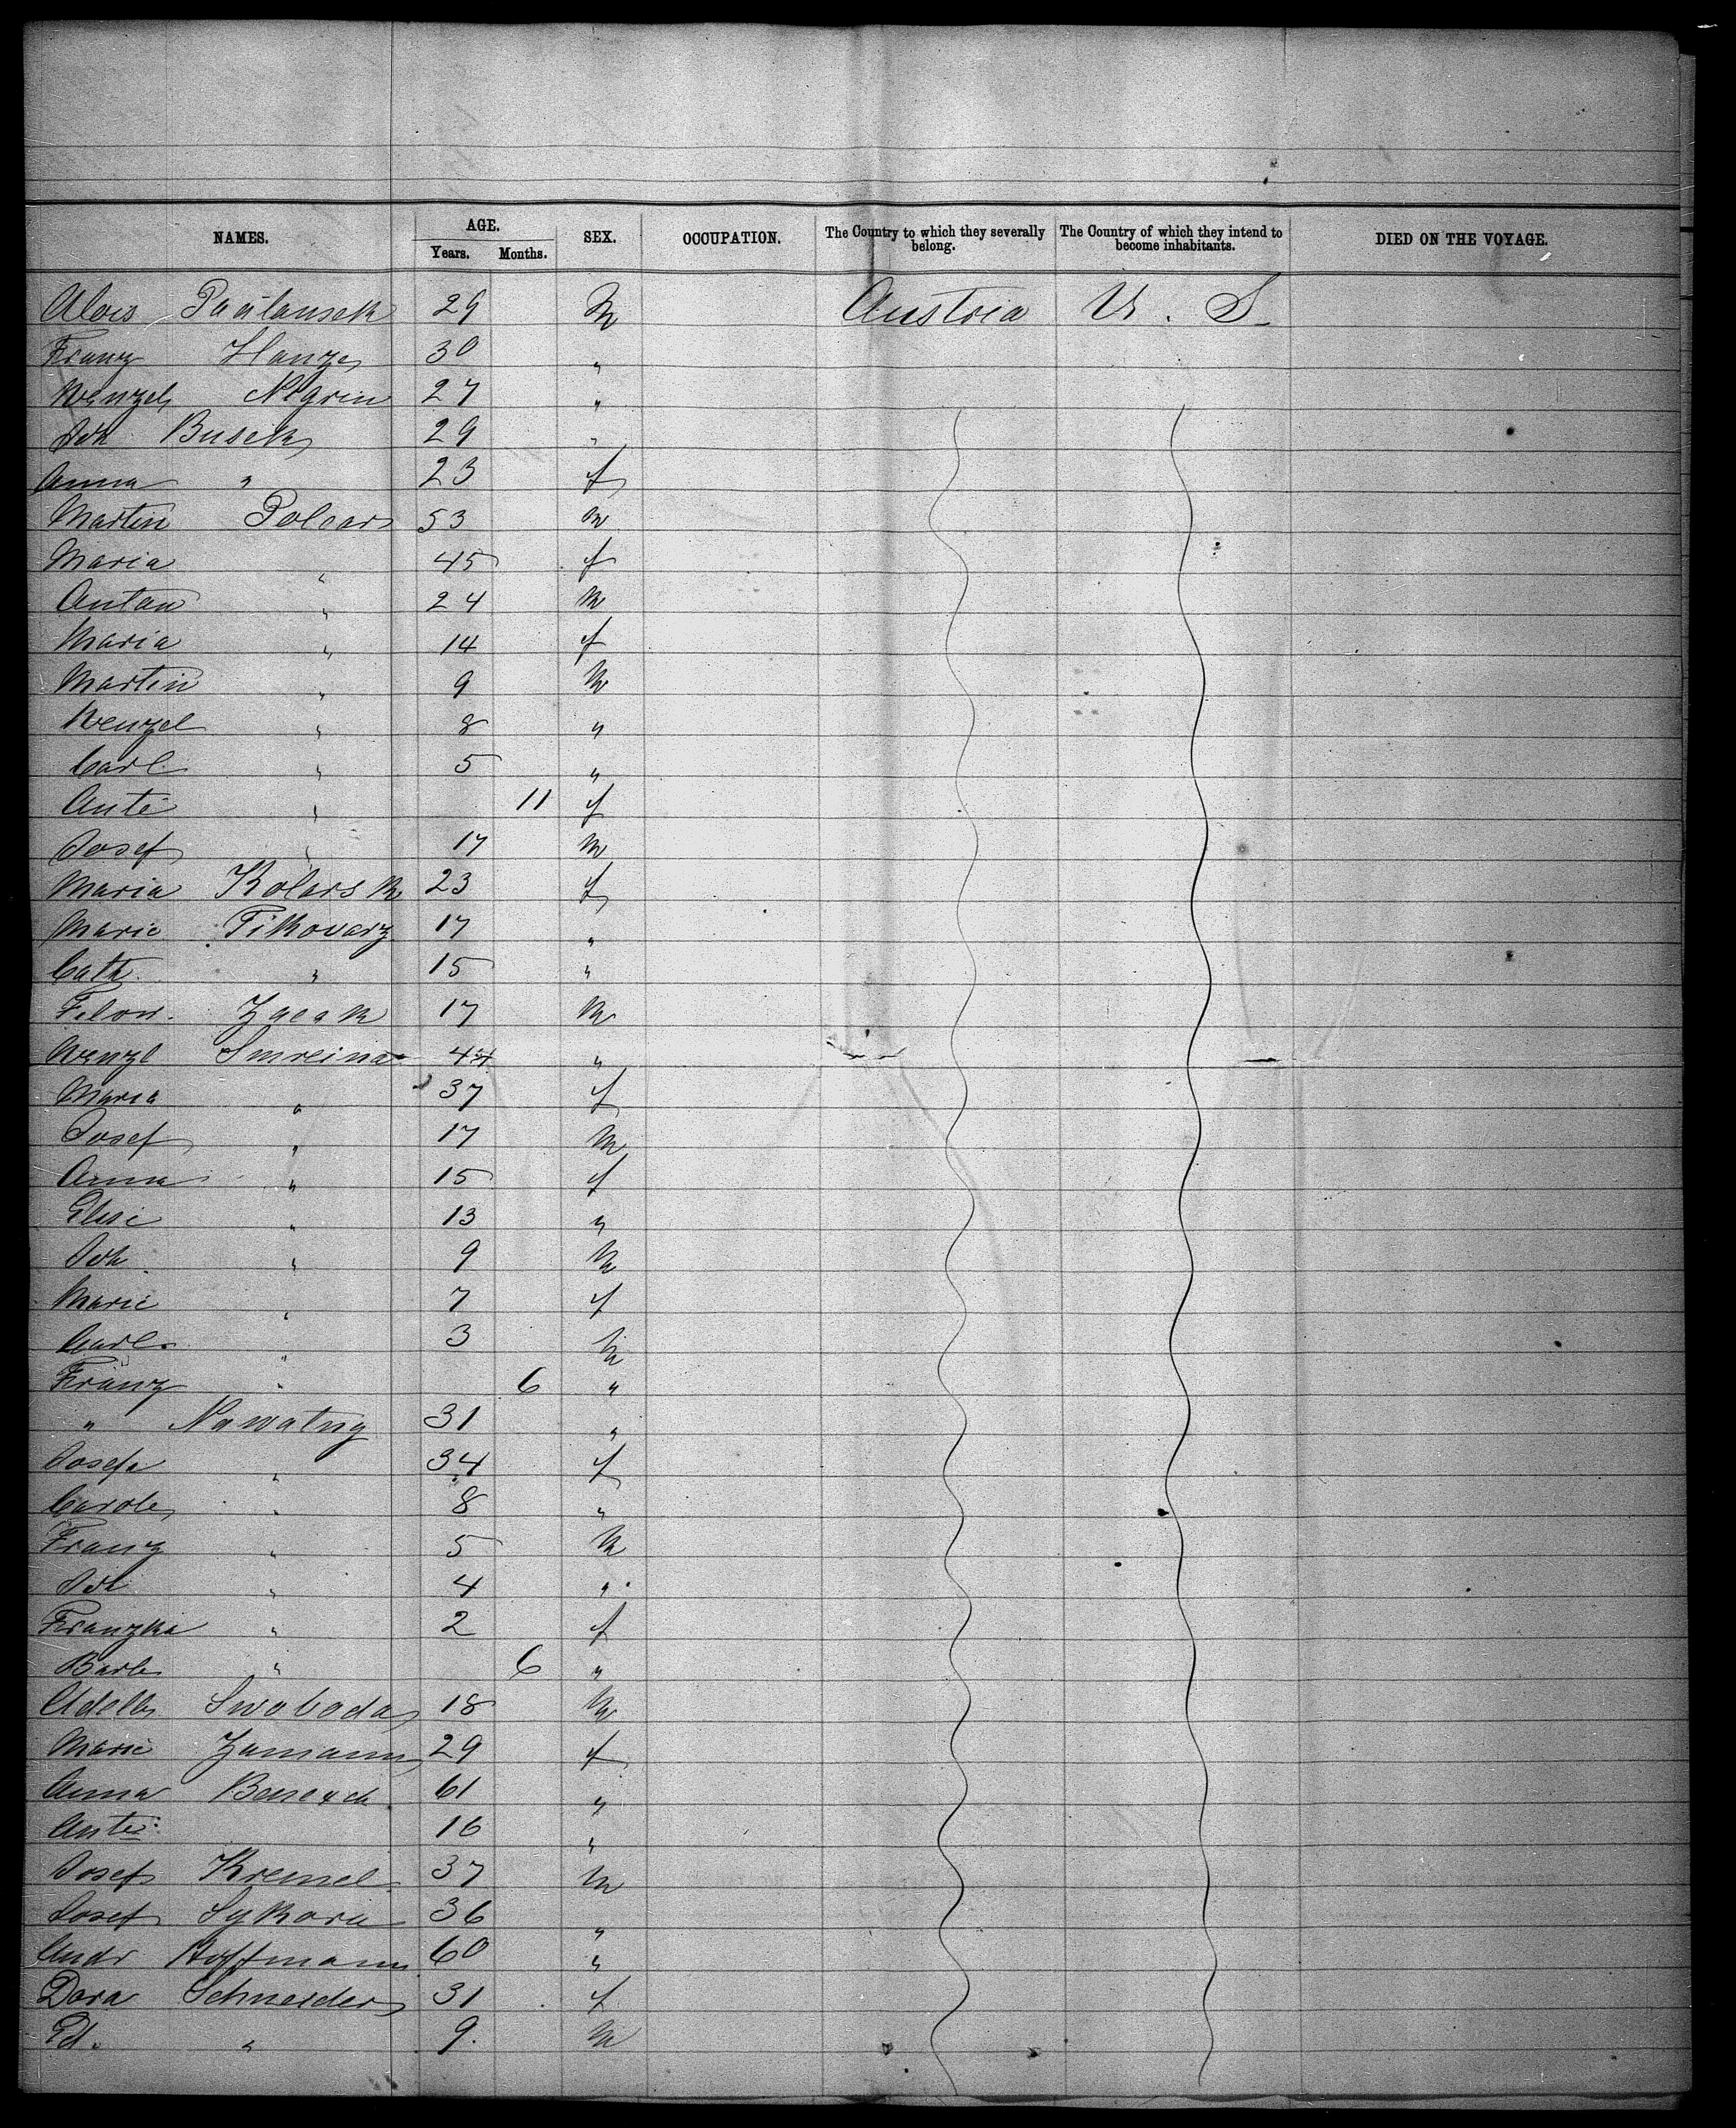 NAMES. AGE. SEX. OCCUPATION. The Country to which they severally belong. The Country of which they intend to become inhabitants. DIED ON THE VOYAGE.
Years. Months.
Alois 29 M Austria U. S.
Franz Hanze 30 "
Wenzel Nigrin 27 "
Joh Busek 29 "
Anna " 23 f
Martin Polcar 53 M
Maria " 45 f
Anton " 24 M
Maria " 14 f
Martin " 9 M
Wenzel " 8 "
Carl " 5 "
Ante " 11 f
Josef " 17 M
Maria Kolarsk 23 f
Marie Tikovarz 17 "
Cath. " 15 "
Zacak 17 M
Wenzl Smreina 44 "
Maria " 37 f
Josef " 17 M
Anna " 15 f
Elise " 13 "
Joh " 9 M
Marie " 7 f
Carl " 3 M
Franz " 6 "
" Nawatny 31 "
Josefa " 34 f
Carole " 8 "
Franz " 5 M
Joh " 4 "
Franzka " 2 f
Barb " 6 "
Adelb Swoboda 18 M
Marie Zamann 29 f
Anna 61 "
Ante 16 "
Josef Kremel 37 M
Josef Sykora 36 "
Andr Hoffmann 60 "
Dora Schneider 31 f
Ed. " 9. M